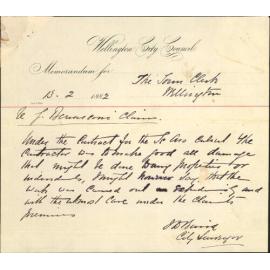 Wellington City Council
Memorandum for
The Town Clerk
13 . 2 1892 Wellington
Claim
Under the Contract for the St Culvert the
Contractor was to make good all damage
that might be done to any properties or
individuals, I might say that the
work was carried out and
with the utmost care under the Claimants
premises
City Surveyor